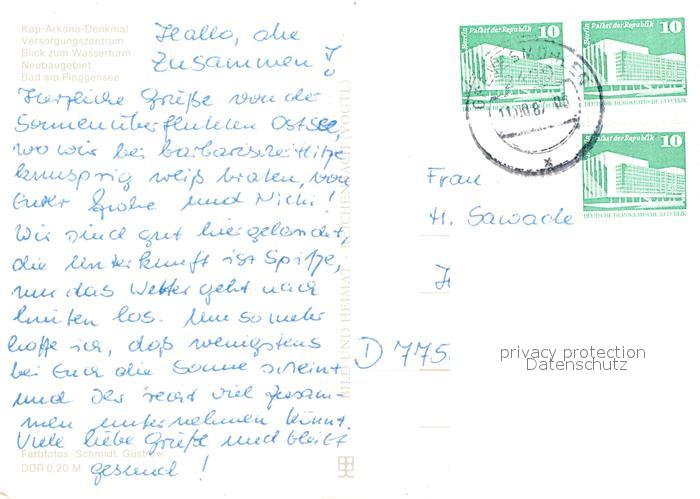 Kap-Arkona-Denkmal
Versorgungszentrum
Blick zum Wasserturm
Neubaugebiet
Bad am Ploggensee
Hallo, die
Zusammen!
Herzliche Grüße von der
Sonnenüberfluteten Ostsee,
wo wir bei barbarischer Hitze
knusprig weiß braten, von
Eurer und Nicki!
Wir sind gut hier gelandet,
die Unterkunft ist Spitze,
nur das Wetter geht nach
hinten los. Um so mehr
hoffe ich, daß wenigstens
bei Euch die Sonne scheint
und Ihr recht viel zusam-
men unternehmen könnt.
Viele liebe Grüße und bleibt
gesund!
Farbfotos: Schmidt, Güstrow
DDR 0,20 M
BILD UND HEIMAT · REICHENBACH (VOGTL)
Berlin Palast der Republik 10
Berlin Palast der Republik 10
DEUTSCHE DEMOKRATISCHE REPUBLIK
Palast der Republik 10
DEUTSCHE DEMOKRATISCHE REPUBLIK
GREVESMÜHLEN
Frau
H. Sawade
D 775
privacy protection
Datenschutz